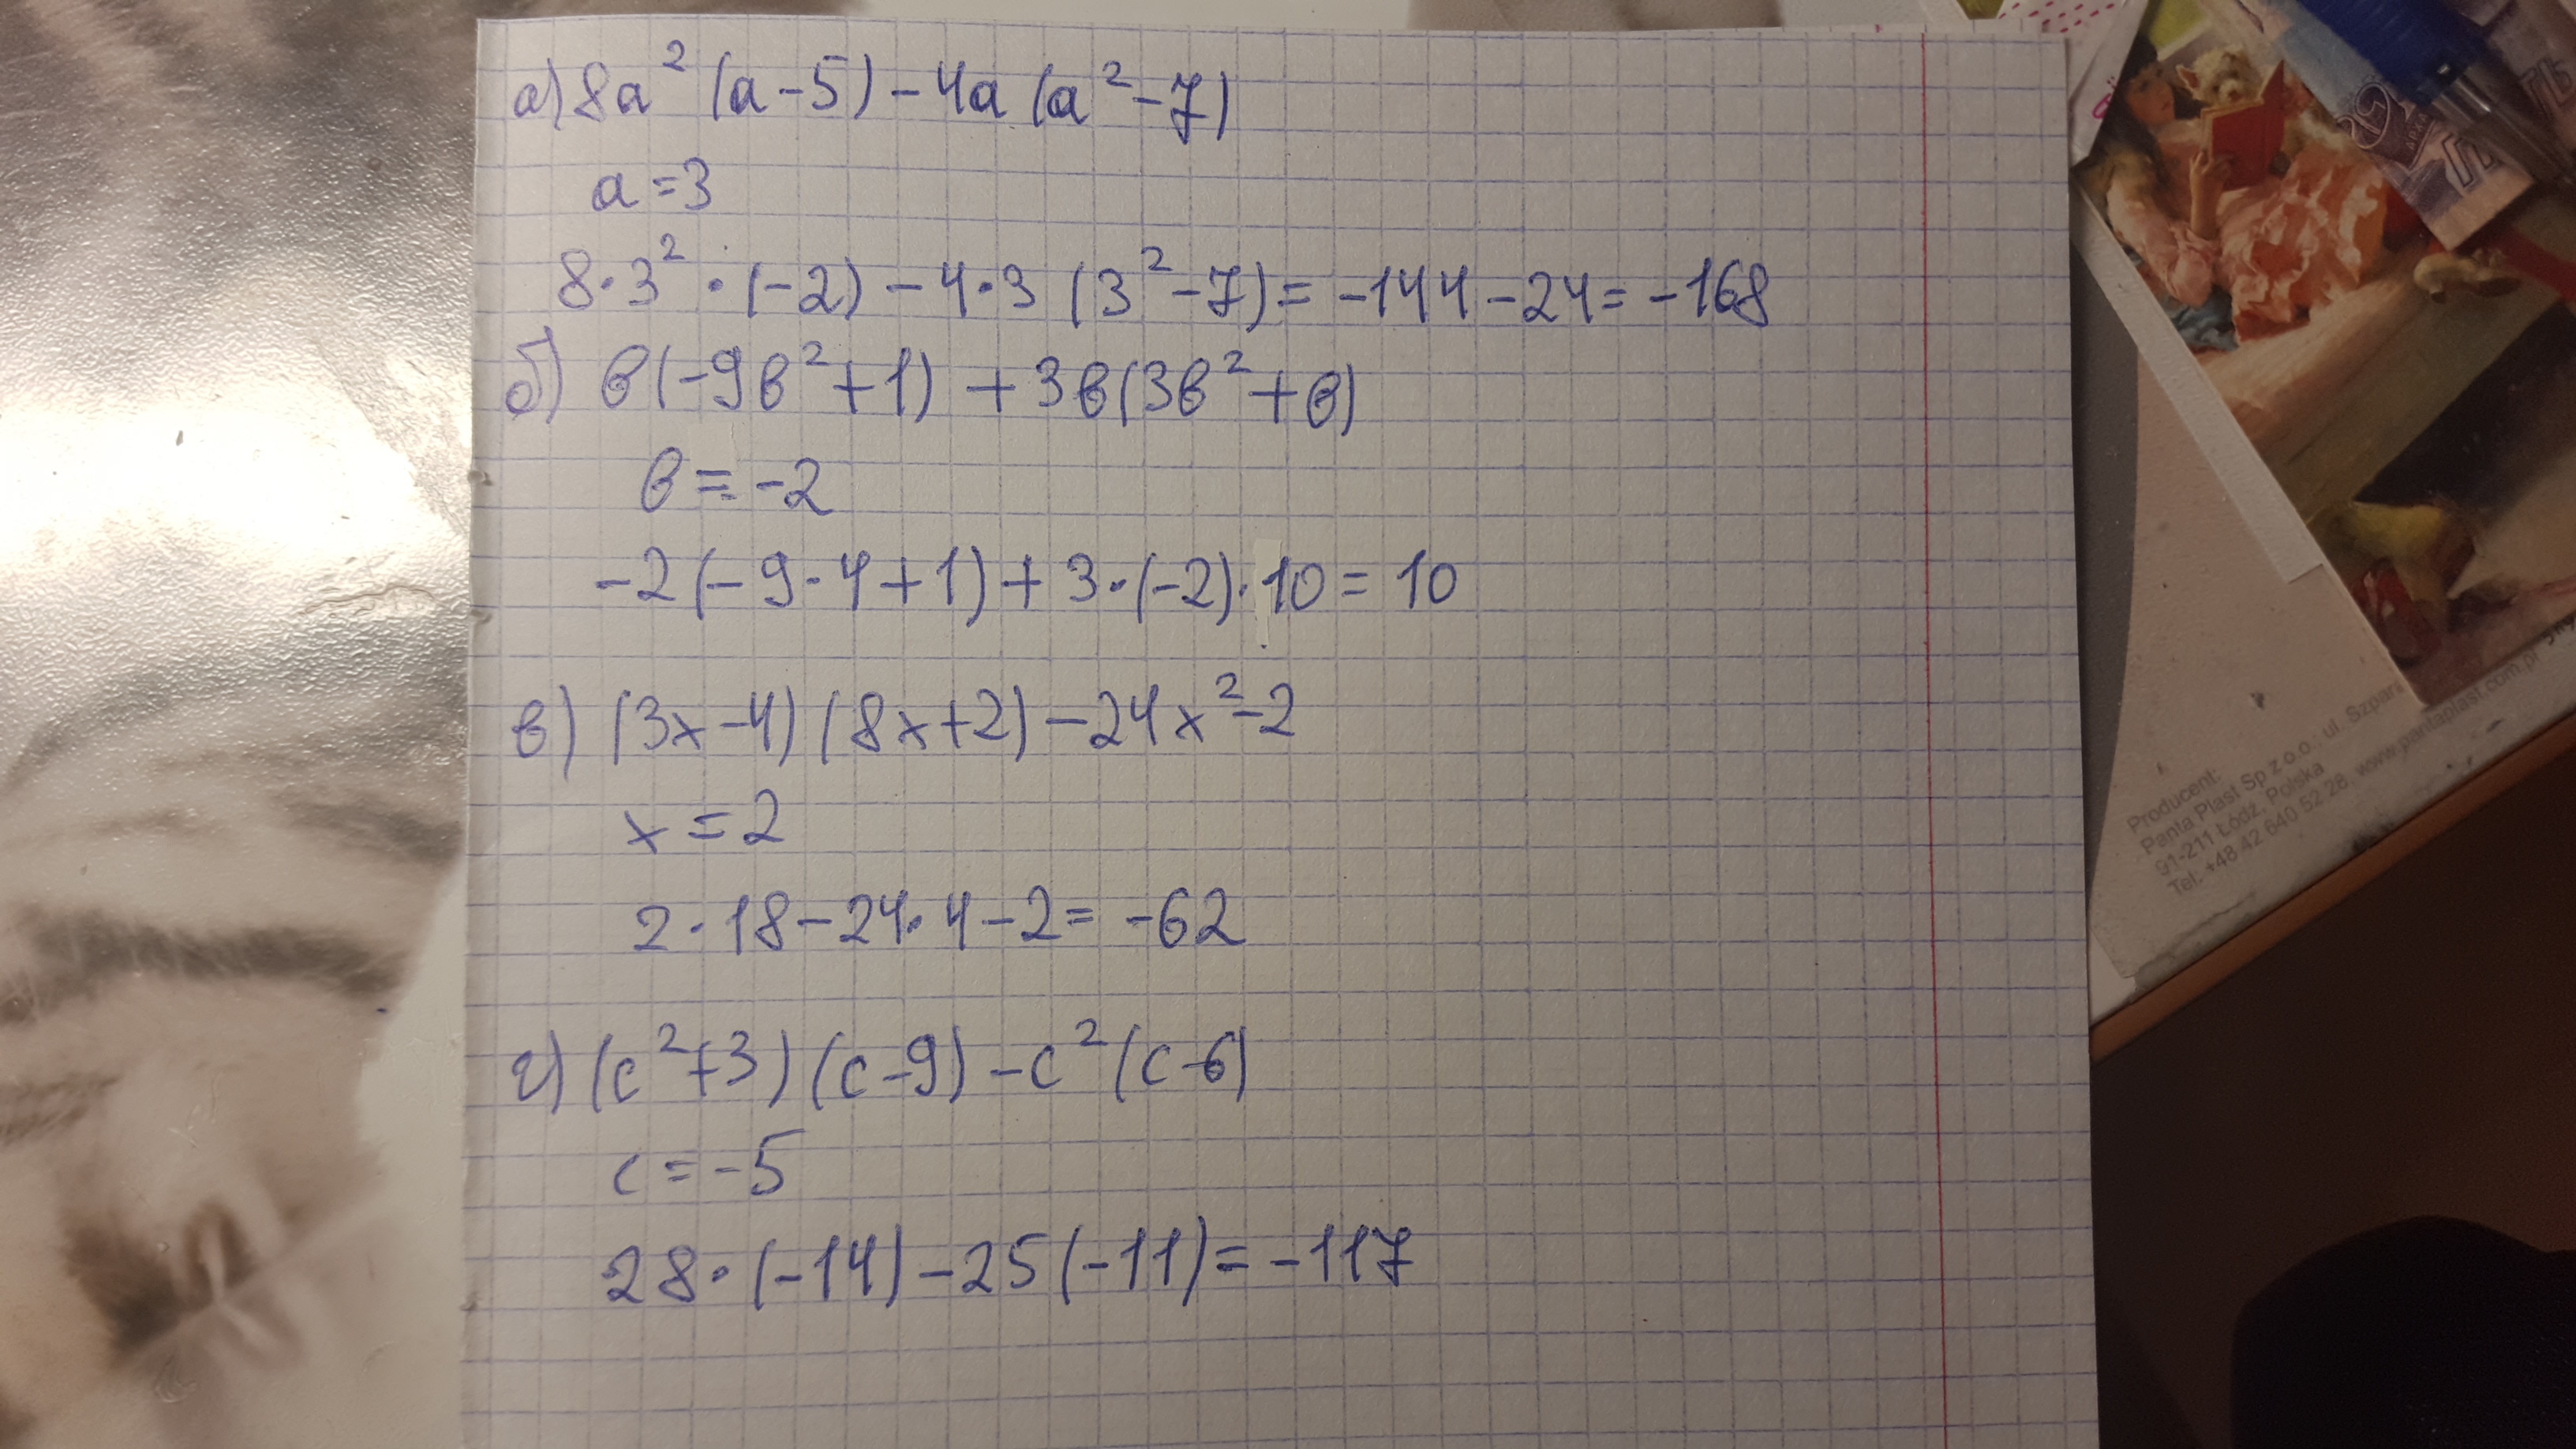 а) 8a² (a-5) - 4a (a² - 7)
a = 3
8·3² · (-2) - 4·3 (3² - 7) = -144 - 24 = -168
б) в(-9в² + 1) + 3в(3в² + в)
в = -2
-2(-9·4+1) + 3·(-2)·10 = 10
в) (3x - 4) (8x+2) - 24x² - 2
x = 2
2·18 - 24·4 - 2 = -62
г) (c² + 3) (c - 9) - c² (c - 6)
c = -5
28·(-14) - 25(-11) = -117
Producent:
Panta Plast Sp z o.o., ul. Szpara
91-211 Łódź, Polska
Tel. +48 42 640 52 28, www.pantaplast.com.pl